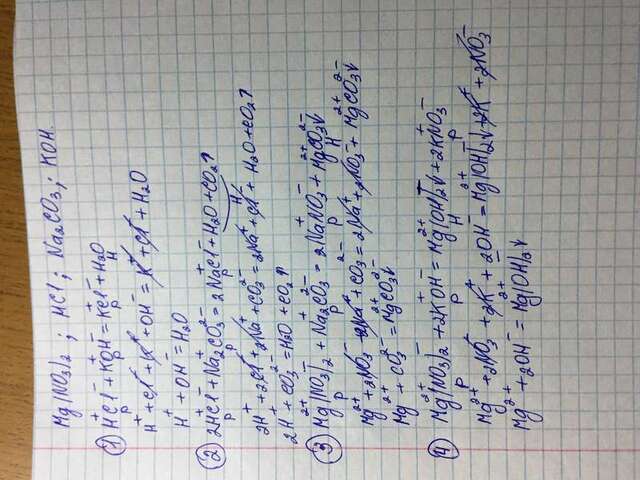 Mg(NO3)2 ; HCl ; Na2CO3 ; KOH.
① H⁺Cl⁻ + K⁺OH⁻ = K⁺Cl⁻ + H2O
р р р Н
H⁺ + Cl⁻ + K⁺ + OH⁻ = K⁺ + Cl⁻ + H2O
H⁺ + OH⁻ = H2O
② 2H⁺Cl⁻ + Na2⁺CO3²⁻ = 2Na⁺Cl⁻ + H2O + CO2↑
р р р Н
2H⁺ + 2Cl⁻ + 2Na⁺ + CO3²⁻ = 2Na⁺ + Cl⁻ + H2O + CO2↑
2H⁺ + CO3²⁻ = H2O + CO2↑
③ Mg²⁺(NO3)2⁻ + Na2⁺CO3²⁻ = 2Na⁺NO3⁻ + Mg²⁺CO3²⁻↓
р р р Н
Mg²⁺ + 2NO3⁻ + 2Na⁺ + CO3²⁻ = 2Na⁺ + 2NO3⁻ + Mg²⁺CO3²⁻↓
Mg²⁺ + CO3²⁻ = Mg²⁺CO3²⁻↓
④ Mg²⁺(NO3)2⁻ + 2K⁺OH⁻ = Mg²⁺(OH)2⁻↓ + 2K⁺NO3⁻
р р Н р
Mg²⁺ + 2NO3⁻ + 2K⁺ + 2OH⁻ = Mg²⁺(OH)2⁻↓ + 2K⁺ + 2NO3⁻
Mg²⁺ + 2OH⁻ = Mg²⁺(OH)2⁻↓